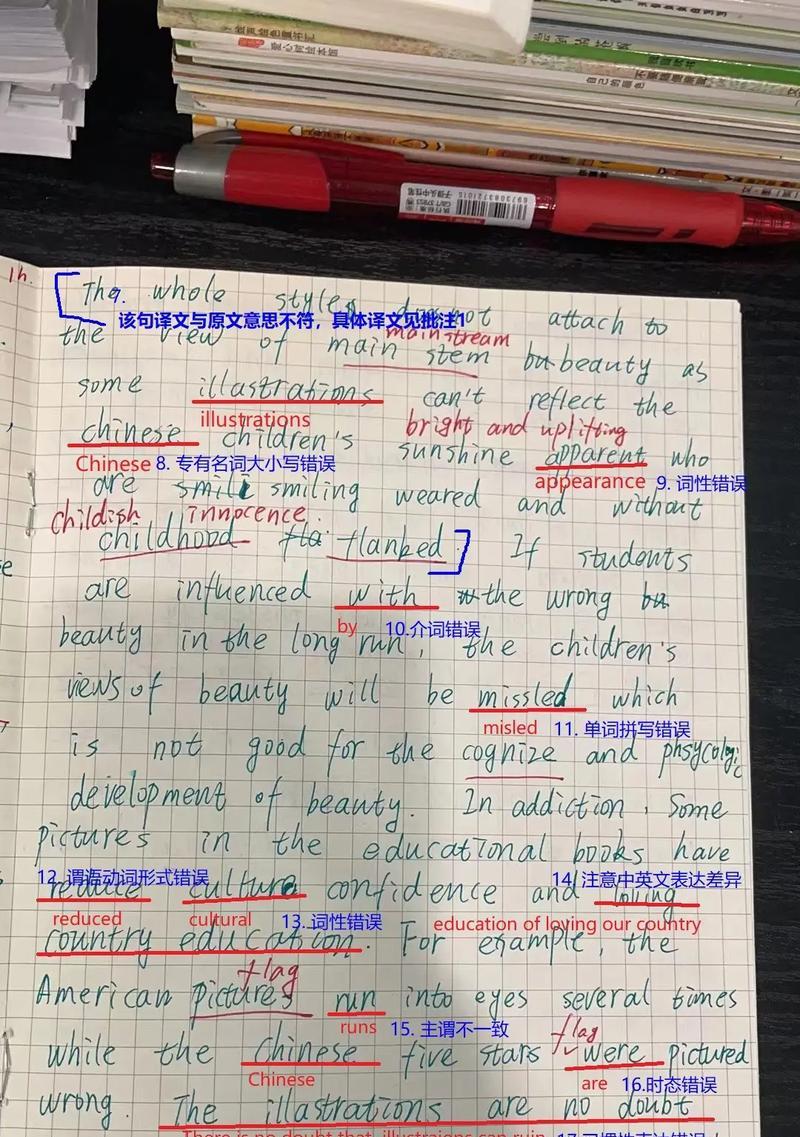 爱心树绘本馆
自己的颜色
6973083721015
1h.
The whole styles do not attach to
9.
该句译文与原文意思不符，具体译文见批注1
mainstream
the view of main stem beauty as
some illastrations can't reflect the
illustrations
bright and uplifting
chinese children's sunshine apparent who
Chinese 8. 专有名词大小写错误
appearance 9. 词性错误
are smili smiling weared and without
childish innocence.
childhood fla flanked. If students
are influenced with the wrong
by 10.介词错误
beauty in the long run, the children's
views of beauty will be missled which
misled 11. 单词拼写错误
is not good for the cognize and phsycologic
development of beauty. In addiction, Some
pictures in the educational books have
12. 谓语动词形式错误
14. 注意中英文表达差异
reduce culture confidence and loving
reduced cultural 13. 词性错误 education of loving our country
country education. For example, the
flag
American pictures run into eyes several times
runs 15. 主谓不一致
flag
while the chinese five stars were pictured
Chinese are 16.时态错误
wrong. The illastrations are no doubt
There is no doubt that